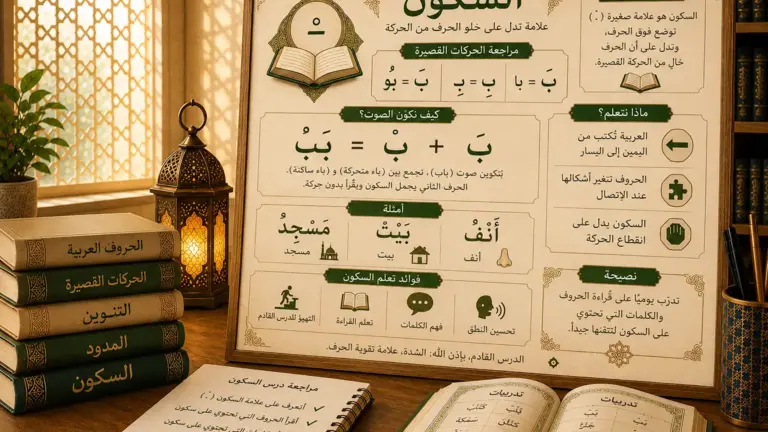 السكون
علامة تدل على خلو الحرف من الحركة
مراجعة الحركات القصيرة
بَ = با
بِ = بِـ
بَ = بُو
كيف نكوّن الصوت؟
بَ + بْ = بَبُ
بتكوين صوت (باب)، تجمع بين (باء متحركة) و (باء ساكنة).
الحرف الثاني يحمل السكون ويقُرأ بدون حركة.
أمثلة
أَنْفُ
أنف
بَيْتْ
بيت
مَسْجِدُ
مسجد
فوائد تعلم السكون
تحسين النطق
فهم الكلمات
تعلم القراءة
التهيؤ للدرس القادم
الدرس القادم، بإذن الله: الشدة، علامة تقوية الحرف.
السكون هو علامة صغيرة (ْ)
توضع فوق الحرف،
وتدل على أن الحرف
خالٍ من الحركة القصيرة.
ماذا نتعلم؟
العربية تُكتب من
اليمين إلى اليسار
الحروف تتغير أشكالها
عند الإتصال
السكون يدل على
انقطاع الحركة
نصيحة
تدرّب يوميًا على قُراءة الحروف
والكلمات التي تحتوي
على السكون لتتقنها جيداً.
الحروف العربية
الحركات القصيرة
التنوين
المدود
السكون
مراجعة درس السكون
✓ أتعرف على علامة السكون (ْ)
✓ أقرأ الحروف التي تحتوي على سكون
تدريبات
تدريبات